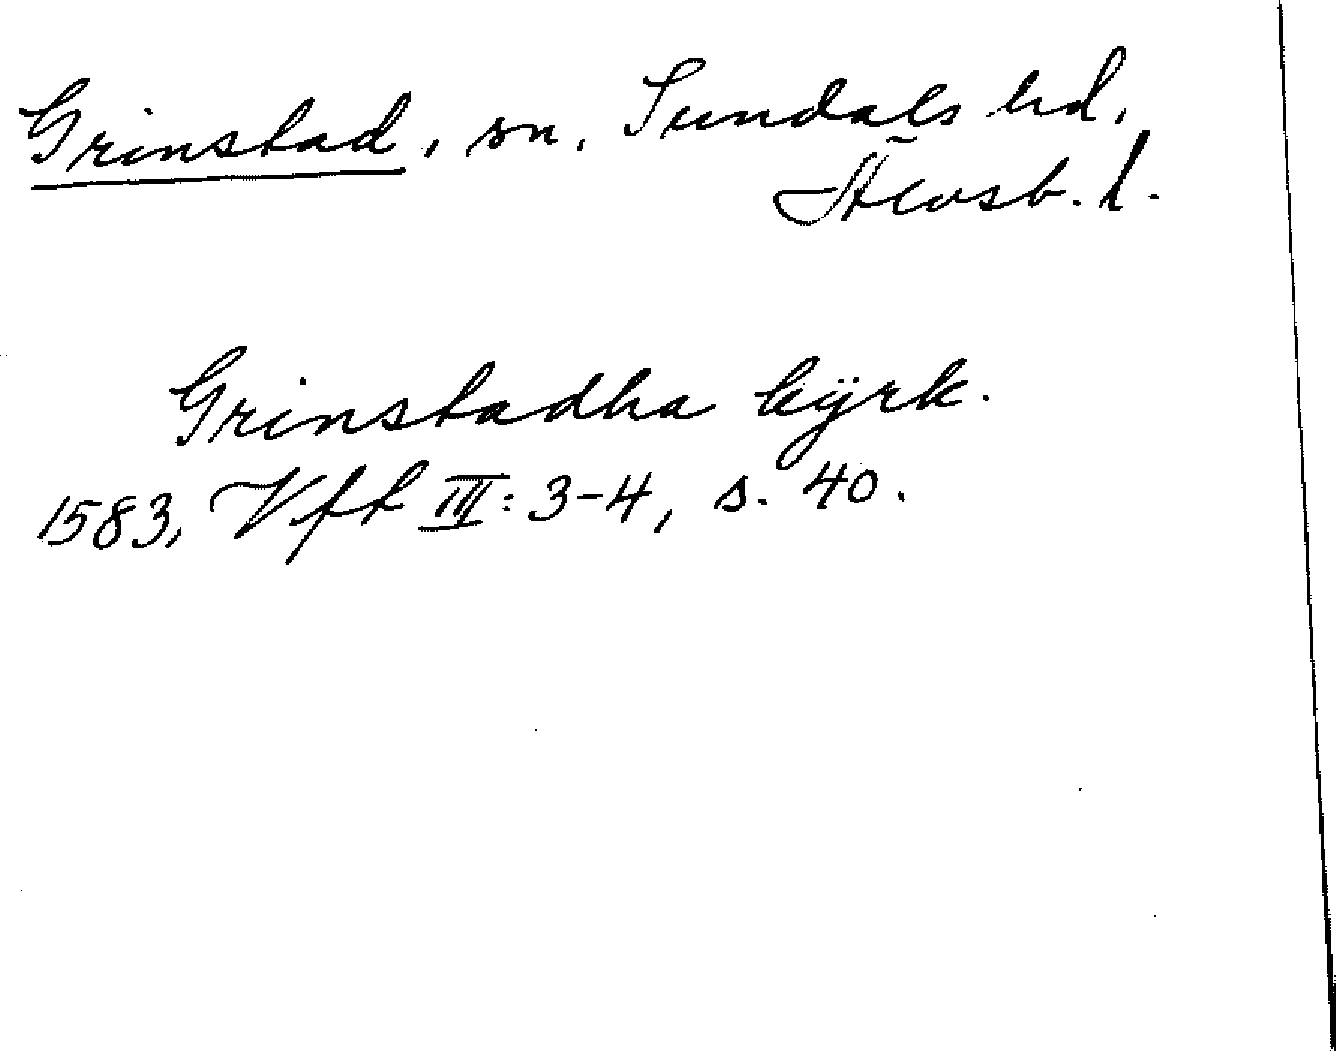 Grinstad, sn, Sundals hd,
Älvsb. l.
Grinstadha kÿrk.
1583, Vft III: 3-4, s. 40.